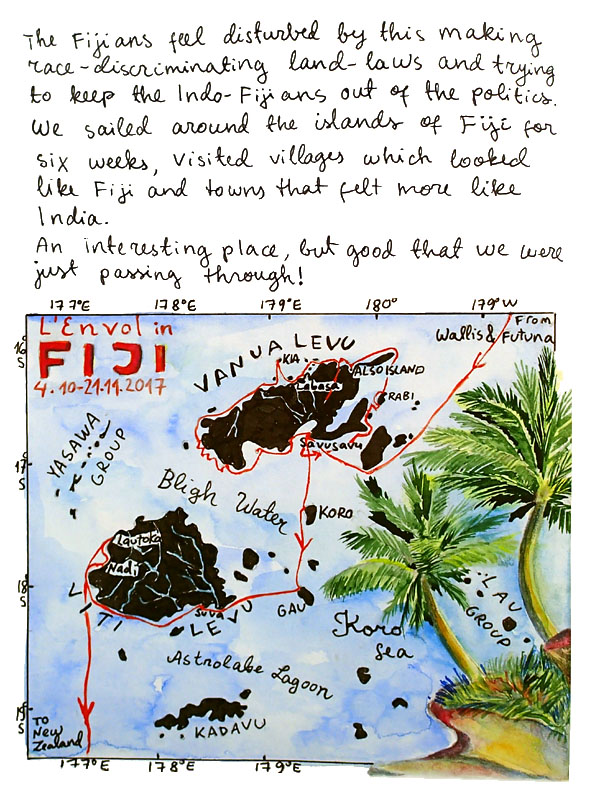 The Fijians feel disturbed by this making
race-discriminating land-laws and trying
to keep the Indo-Fijians out of the politics.
We sailed around the islands of Fiji for
six weeks, visited villages which looked
like Fiji and towns that felt more like
India.
An interesting place, but good that we were
just passing through!
177°E 178°E 179°E 180° 179°W
L'Envol in
FIJI
4.10-21.11.2017
From
Wallis & Futuna
16
S
VANUA LEVU
KIA
Labasa
ALSO ISLAND
RABI
YASAWA
GROUP
Savusavu
17
S
Bligh Water
KORO
Lautoka
Nadi
18
S
GAU
VITI LEVU
Suva
LAU
GROUP
Koro
Sea
Astrolabe Lagoon
19
S
KADAVU
TO
New
Zealand
177°E 178°E 179°E